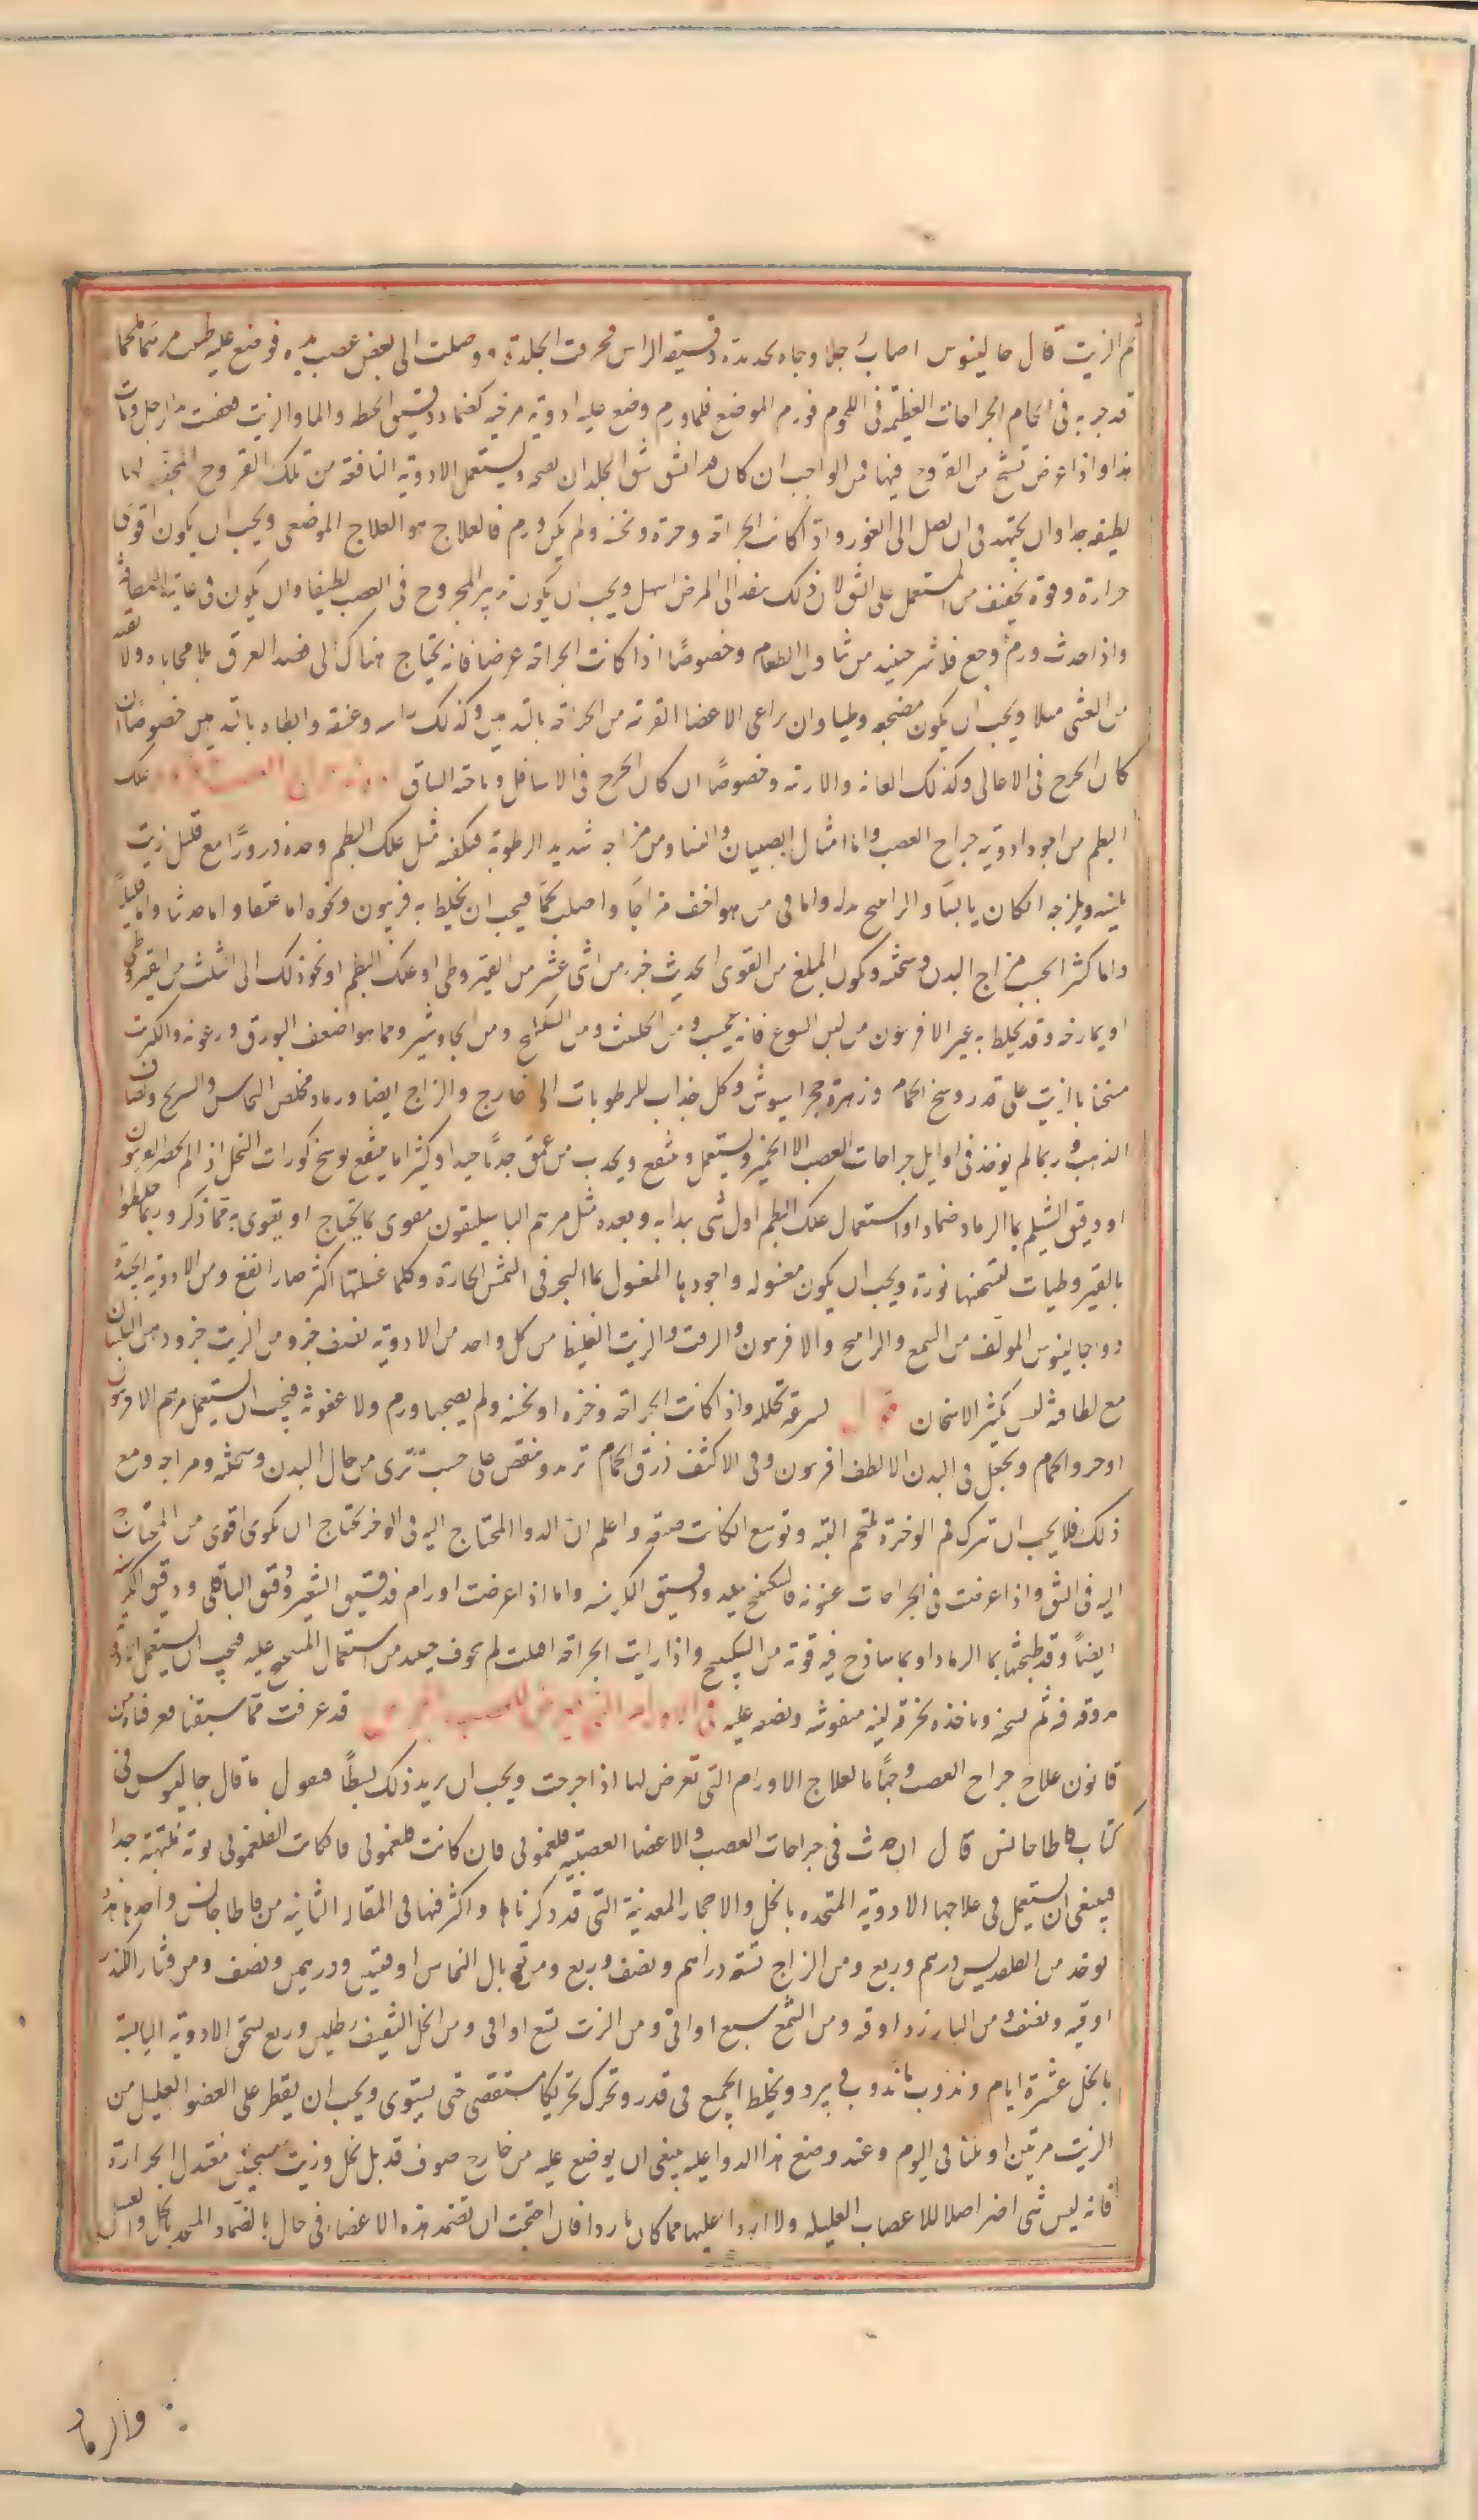 ثم الزيت قال جالينوس اصاب رجلا وجاه بحديدة دقيقة الراس فخرقت الجلدة ووصلت الى بعض عصب يده فوضع عليه طبيب مرهما ملحما
قد جربه فى الحام الجراحات العظيمة فى اللحوم فورم الموضع فلما ورم وضع عليه ادوية مرخيه كضماد دقيق الحنطه والماء والزيت فعفنت يد الرجل ومات
هذا واذا عرض تشنج من القروح فيها فمن الواجب ان كان قد انشق شق الجلد ان يعمد ويستعمل الادوية النافعة من تلك القروح المجففه
لطيفه جدا وان يجتهد فى ان يصل الى الغور واذا كانت الجراحه وخزه ونخسه ولم يكن ورم فالعلاج هو العلاج الموضعى ويجب ان يكون اقوى
حرارة وقوة تجفيف من المستعمل على الشق لان ذلك ينفذ الى المرض اسهل ويجب ان يكون تدبير المجروح فى العصب لطيفا وان يكون فى غاية اللطافة
واذا حدث ورم وجع فلا شر حينئذ من تناول الطعام وخصوصًا اذا كانت الجراحه عرضا فانه يحتاج هناك الى فصد العرق بلا محاباه ولا تقيه
من الغشى مثلا ويجب ان يكون مضجعه وطيا وان يراعى الاعضا القريبه من الجراحه بالتدهين وكذلك راسه وعنقه وابطاه بالتدهين خصوصًا ان
كان الجرح فى الاعالى وكذلك العانه والاربيه وخصوصًا ان كان الجرح فى الاسافل وناحية الساق علك
البطم من اجود ادوية جراح العصب واما امثال الصبيان والنسا ومن مزاجه شديد الرطوبة فيكفيه مثل علك البطم وحده ذرورًا مع قليل زيت
يلينه ويلزجه ان كان يابسًا والراتنج بدله واما فى من هو اخف مزاجًا واصلب لحمًا فيجب ان يخلط به فربيون ونحوه اما عتيقا واما حديثا واما قليلاً
واما كثيرا بحسب مزاج البدن وسحنته ويكون المبلغ من القوى الحديث جزء من اثنى عشر من القيروطى او علك البطم او نحو ذلك الى الثلث من القيروطى
او بما رخو وقد يخلط به غير الافربيون من لبن اليتوع فانه عجيب ومن الحلتيت ومن السكبينج ومن الجاوشير ومما هو اضعف البورق ورغوته والكبريت
مسخنا بالزيت على قدر وسخ الحمام وزهرة حجر اسيوش وكل جذاب للرطوبات الى خارج والزاج ايضا ورماد مخلص النحاس
الذهب وربما لم يوخذ فى اوايل جراحات العصب الا الخمير ويستعمل وينفع ويجذب من عمق جذبًا جيدا وكثيرا ما ينفع بوسخ كورات النحل اذا لم يحضر الفربيون
او دقيق الشيلم بماء الرماد ضمادا واستعمال علك البطم اول شى يبدا به وبعده مثل مرهم الباسيليقون مقوى بما يحتاج او يقوى به مما ذكر وربما خلطوا
بالقيروطيات لتسخينها نورة ويجب ان يكون مغسوله واجودها المغسول بماء البحر فى الشمس الحارة وكلما غسلتها اكثر صار انفع ومن الادوية الجيدة
دواء جالينوس المولف من الشمع والراتنج والافربيون والزفت والزيت الغليظ من كل واحد من الادوية نصف جزء ومن الزيت جزء ودهن البلسان
مع لطافته ليس بكثير الاسخان لسرعة تحلله واذا كانت الجراحه وخزه او نخسه ولم يصحبها ورم ولا عفونه فيجب ان يستعمل مرهم الافربيون
او خرو الحمام ويجعل فى البدن الالطف افربيون وفى الاكثف ذرق الحمام تزيد وتنقص على حسب ما ترى من حال البدن وسحنته ومزاجه ومع
ذلك فلا يجب ان تترك فم الوخزة تلتحم البته وتوسع ان كانت ضيقه واعلم ان الدوا المحتاج اليه فى الوخز يحتاج ان يكون اقوى من المحتاج
اليه فى الشق واذا عرضت فى الجراحات عفونه فالسكنجبين جيد ودقيق الكرسنه واما اذا عرضت اورام فدقيق الشعير ودقيق الباقلى ودقيق الكرسنه
ايضًا وقد طبختها بماء الرماد او بماء ساذج فيه قوة من السكبينج واذا رايت الجراحه اقبلت لم تخوف حينئذ من استعمال الميبختج عليه فيجب ان يستعمل
مدوفه فيه ثم تسخنه وتاخذه بخرقه لينه منفوشه وتضعه عليه قد عرفت مما سبقنا معرفناك من
قانون علاج جراح العصب وجهًا ما لعلاج الاورام التى تعرض لها اذا جرحت ويجب ان نزيد ذلك بسطًا فنقول ما قال جالينوس فى
كتاب قاطاجانس قال ان حدث فى جراحات العصب والاعضا العصبيه فلغمونى فان كانت فلغمونى ملتهبه جدا
فينبغى ان يستعمل فى علاجها الادوية المتخذه بالخل والاحجار المعدنية التى قد ذكرناها واكثر منها فى المقاله الثانيه من قاطاجانس واحدها هذه
يوخذ من القلقديس درهم وربع ومن الزاج ستة دراهم ونصف وربع ومن توبال النحاس اوقيتين ودرهمين ونصف ومن قشار الكندر
اوقيه ونصف ومن البارزد اوقيه ومن الشمع سبع اواقى ومن الزيت تسع اواقى ومن الخل الثقيف رطلين وربع يسحق الادوية اليابسة
بالخل عشرة ايام ويذوب ما يذوب فى برد ويخلط الجميع فى قدر وتحرك تحريكا مستقصى حتى يستوى ويجب ان يقطر على العضو العليل من
الزيت مرتين او ثلثا فى اليوم وعند وضع هذا الدوا عليه ينبغى ان يوضع عليه من خارج صوف قد بل بخل وزيت مسخن معتدل الحرارة
فانه ليس شى اضر اصلا للاعصاب العليله ولا اردا عليها مما كان باردا فان احتجت ان تضمد هذه الاعضاء فى حال بالضماد المتخذ بالخل والعسل
والرماد